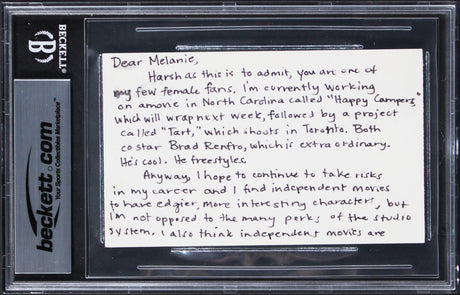 BECKETT
beckett.com
Your Sports Collectibles Marketplace
Dear Melanie,
Harsh as this is to admit, you are one of
my few female fans. I'm currently working
on a movie in North Carolina called "Happy Campers"
which will wrap next week, followed by a project
called "Tart," which shoots in Toronto. Both
co star Brad Renfro, which is extraordinary.
He's cool. He freestyles.
Anyway, I hope to continue to take risks
in my career and I find independent movies
to have edgier, more interesting characters, but
I'm not opposed to the many perks of the studio
system. I also think independent movies are